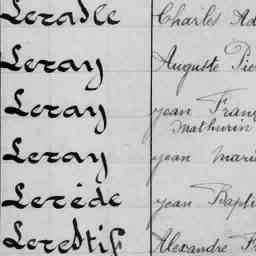 Leradle Charles Ad
Leray Auguste Pie
Leray Jean Franç
Mathurin
Leray Jean Marie
Lerède Jean Bapti
Lerestif Alexandre F